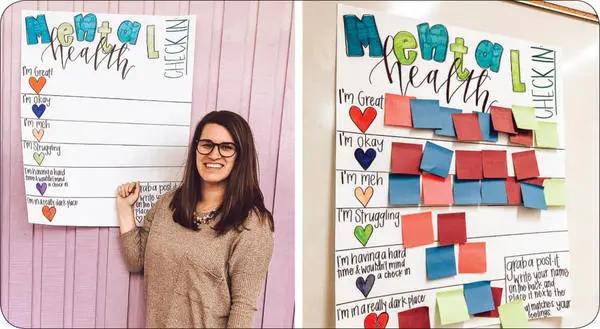 Mental
health
CHECK IN
I'm Great!
I'm Okay
I'm meh
I'm Struggling
I'm having a hard
time & wouldn't mind
a check in
I'm in a really dark place
grab a post-it
write your
on the
Mental
health
CHECK IN
I'm Great
I'm Okay
I'm meh
I'm Struggling
I'm having a hard
time & wouldn't mind
a check in
I'm in a really dark place
grab a post-it
write your names
on the back, and
place it next to the
matches your
feelings